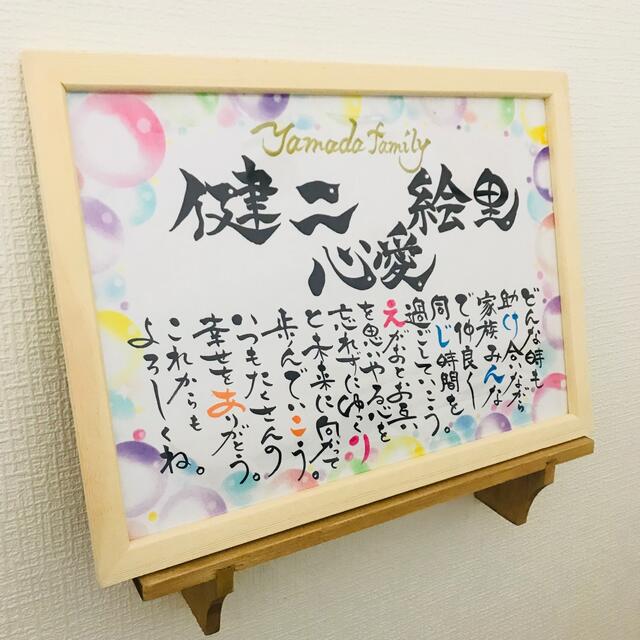 Yamada Family
健二 絵里
心愛
どんな時も
助け合いながら
家族みんな
で仲良く
同じ時間を
過ごしていこう。
えがおとお互い
を思いやる心を
忘れずにゆっくり
と未来に向かって
歩んでいこう。
いつもたくさんの
幸せをありがとう。
これからも
よろしくね。